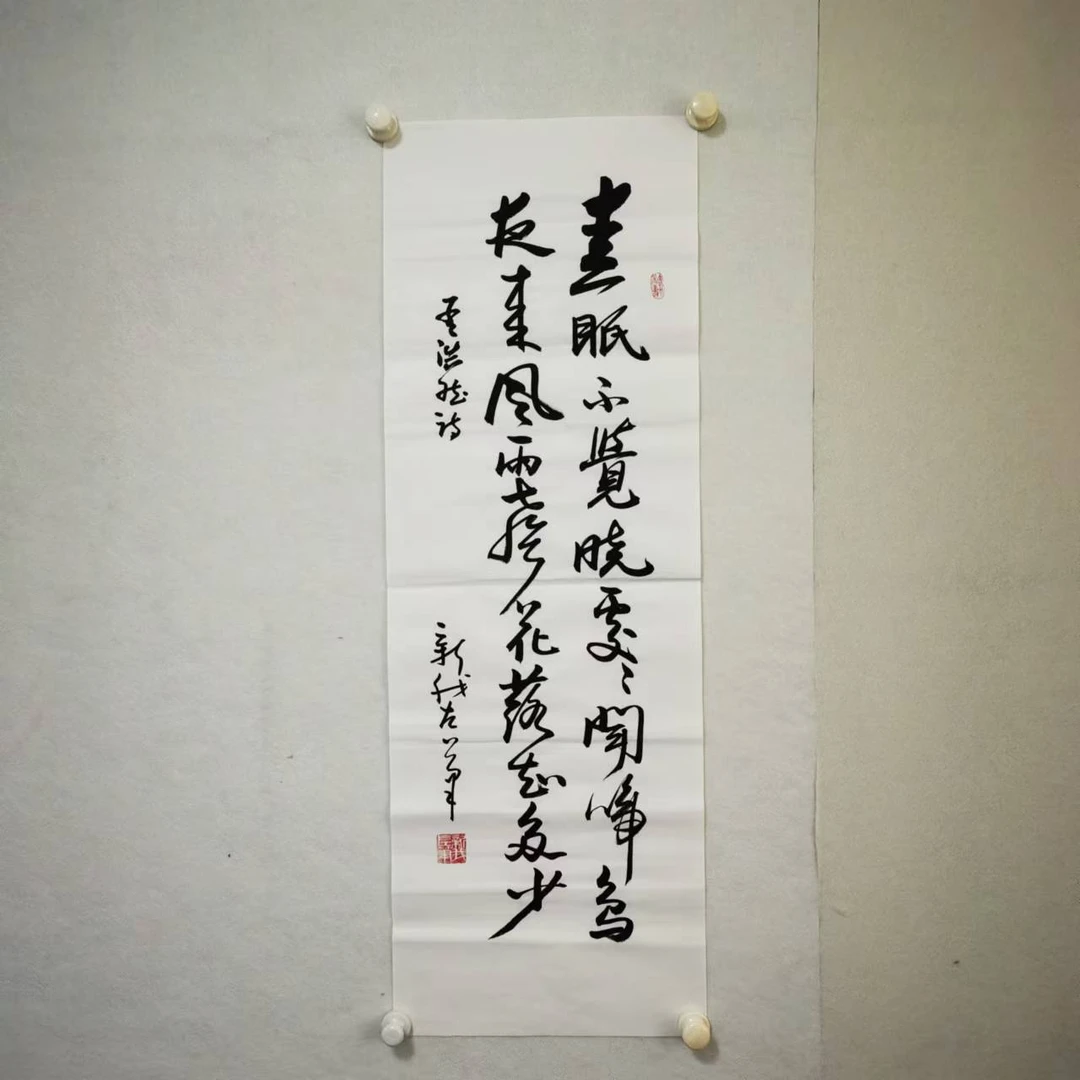 春眠不覺曉處〻聞啼鳥
夜来風雨聲花落知多少
孟浩然詩
新我左筆